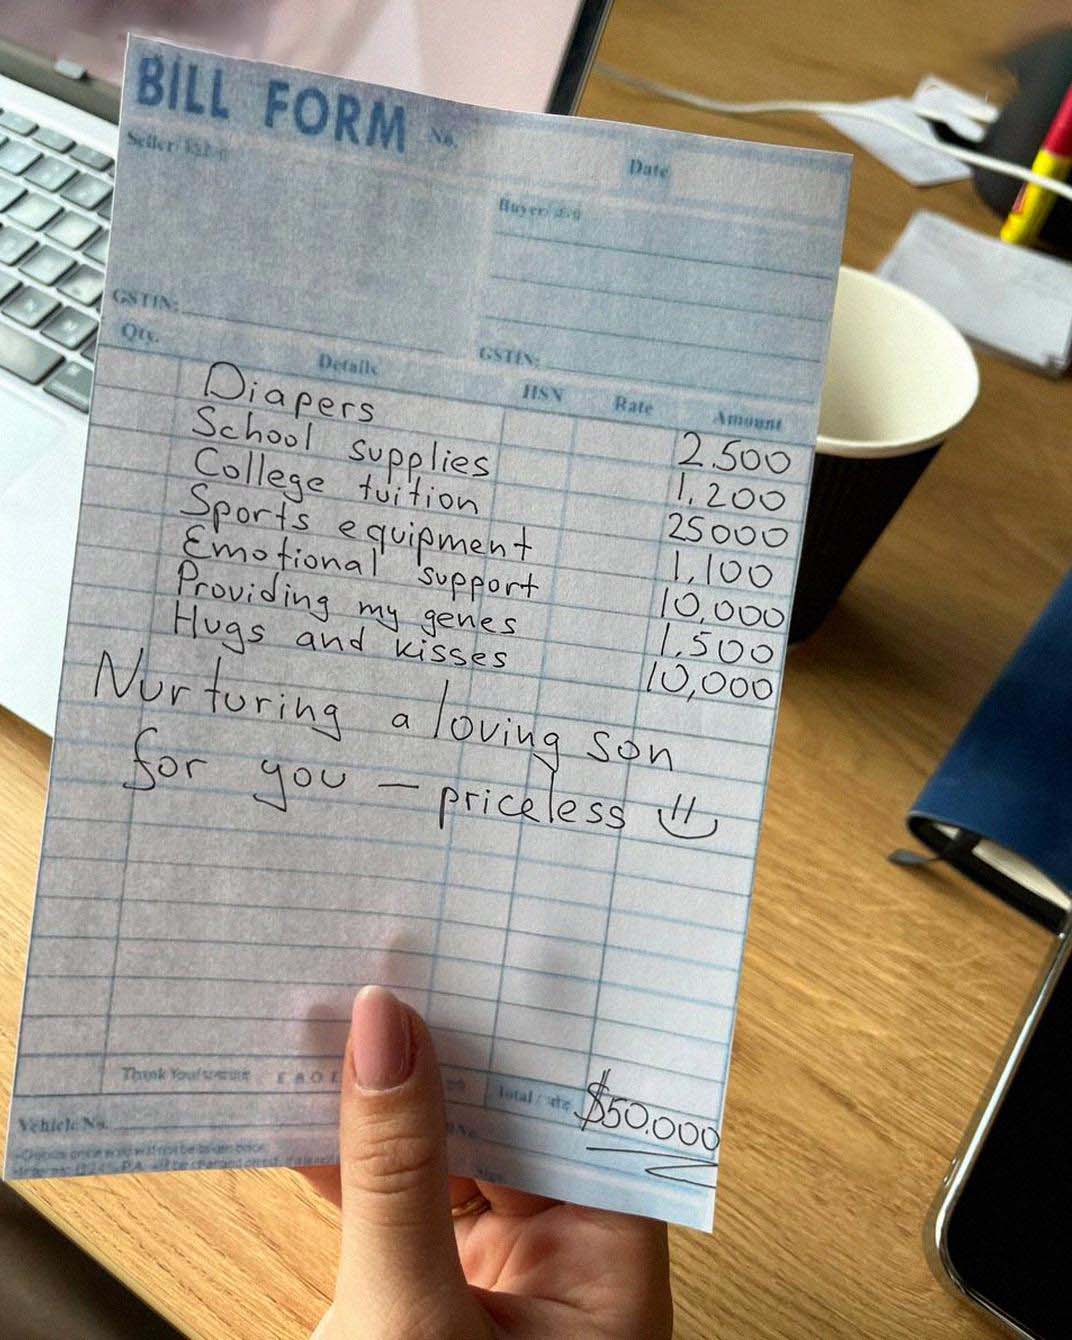 BILL FORM No.
Date
Seller
Buyer
GSTIN:
GSTIN:
Qty. Details HSN Rate Amount
Diapers 2.500
School supplies 1,200
College tuition 25000
Sports equipment 1,100
Emotional support 10,000
Providing my genes 1,500
Hugs and kisses 10,000
Nurturing a loving son
for you — priceless
Thank You! E & O E
Total $50.000
Vehicle No.